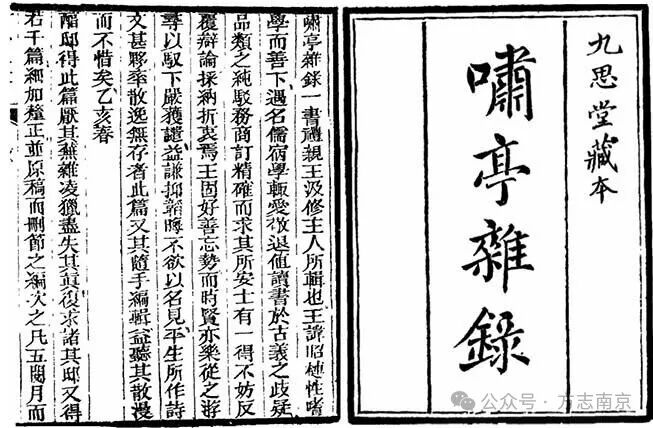 九思堂藏本
嘯亭雜錄
嘯亭雜錄一書禮親王汲修主人所輯也王諱昭槤性嗜
學而善下遇名儒宿學輒愛敬退値讀書於古義之歧疑
品類之純駁務商訂精確而求其所安士有一得不妨反
覆辯論採納折衷焉王固好善忘勢而時賢亦樂從之游
尋以馭下嚴獲譴益謙抑韜晦不欲以名見平生所作詩
文甚夥率散逸無存者此篇又其隨手編輯益聽其散漫
而不惜矣乙亥春
醕邸得此篇厭其蕪雜凌獵盡失其眞復求諸其邸又得
若干篇細加釐正並原稿而刪節之編次之凡五閱月而
公众号 · 方志南京